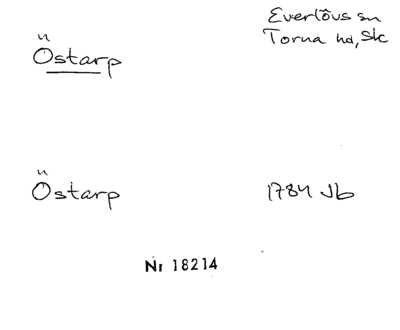 Östarp
Everlövs sn
Torna hd, Sk
Östarp
1784 Jb
Nr 18214